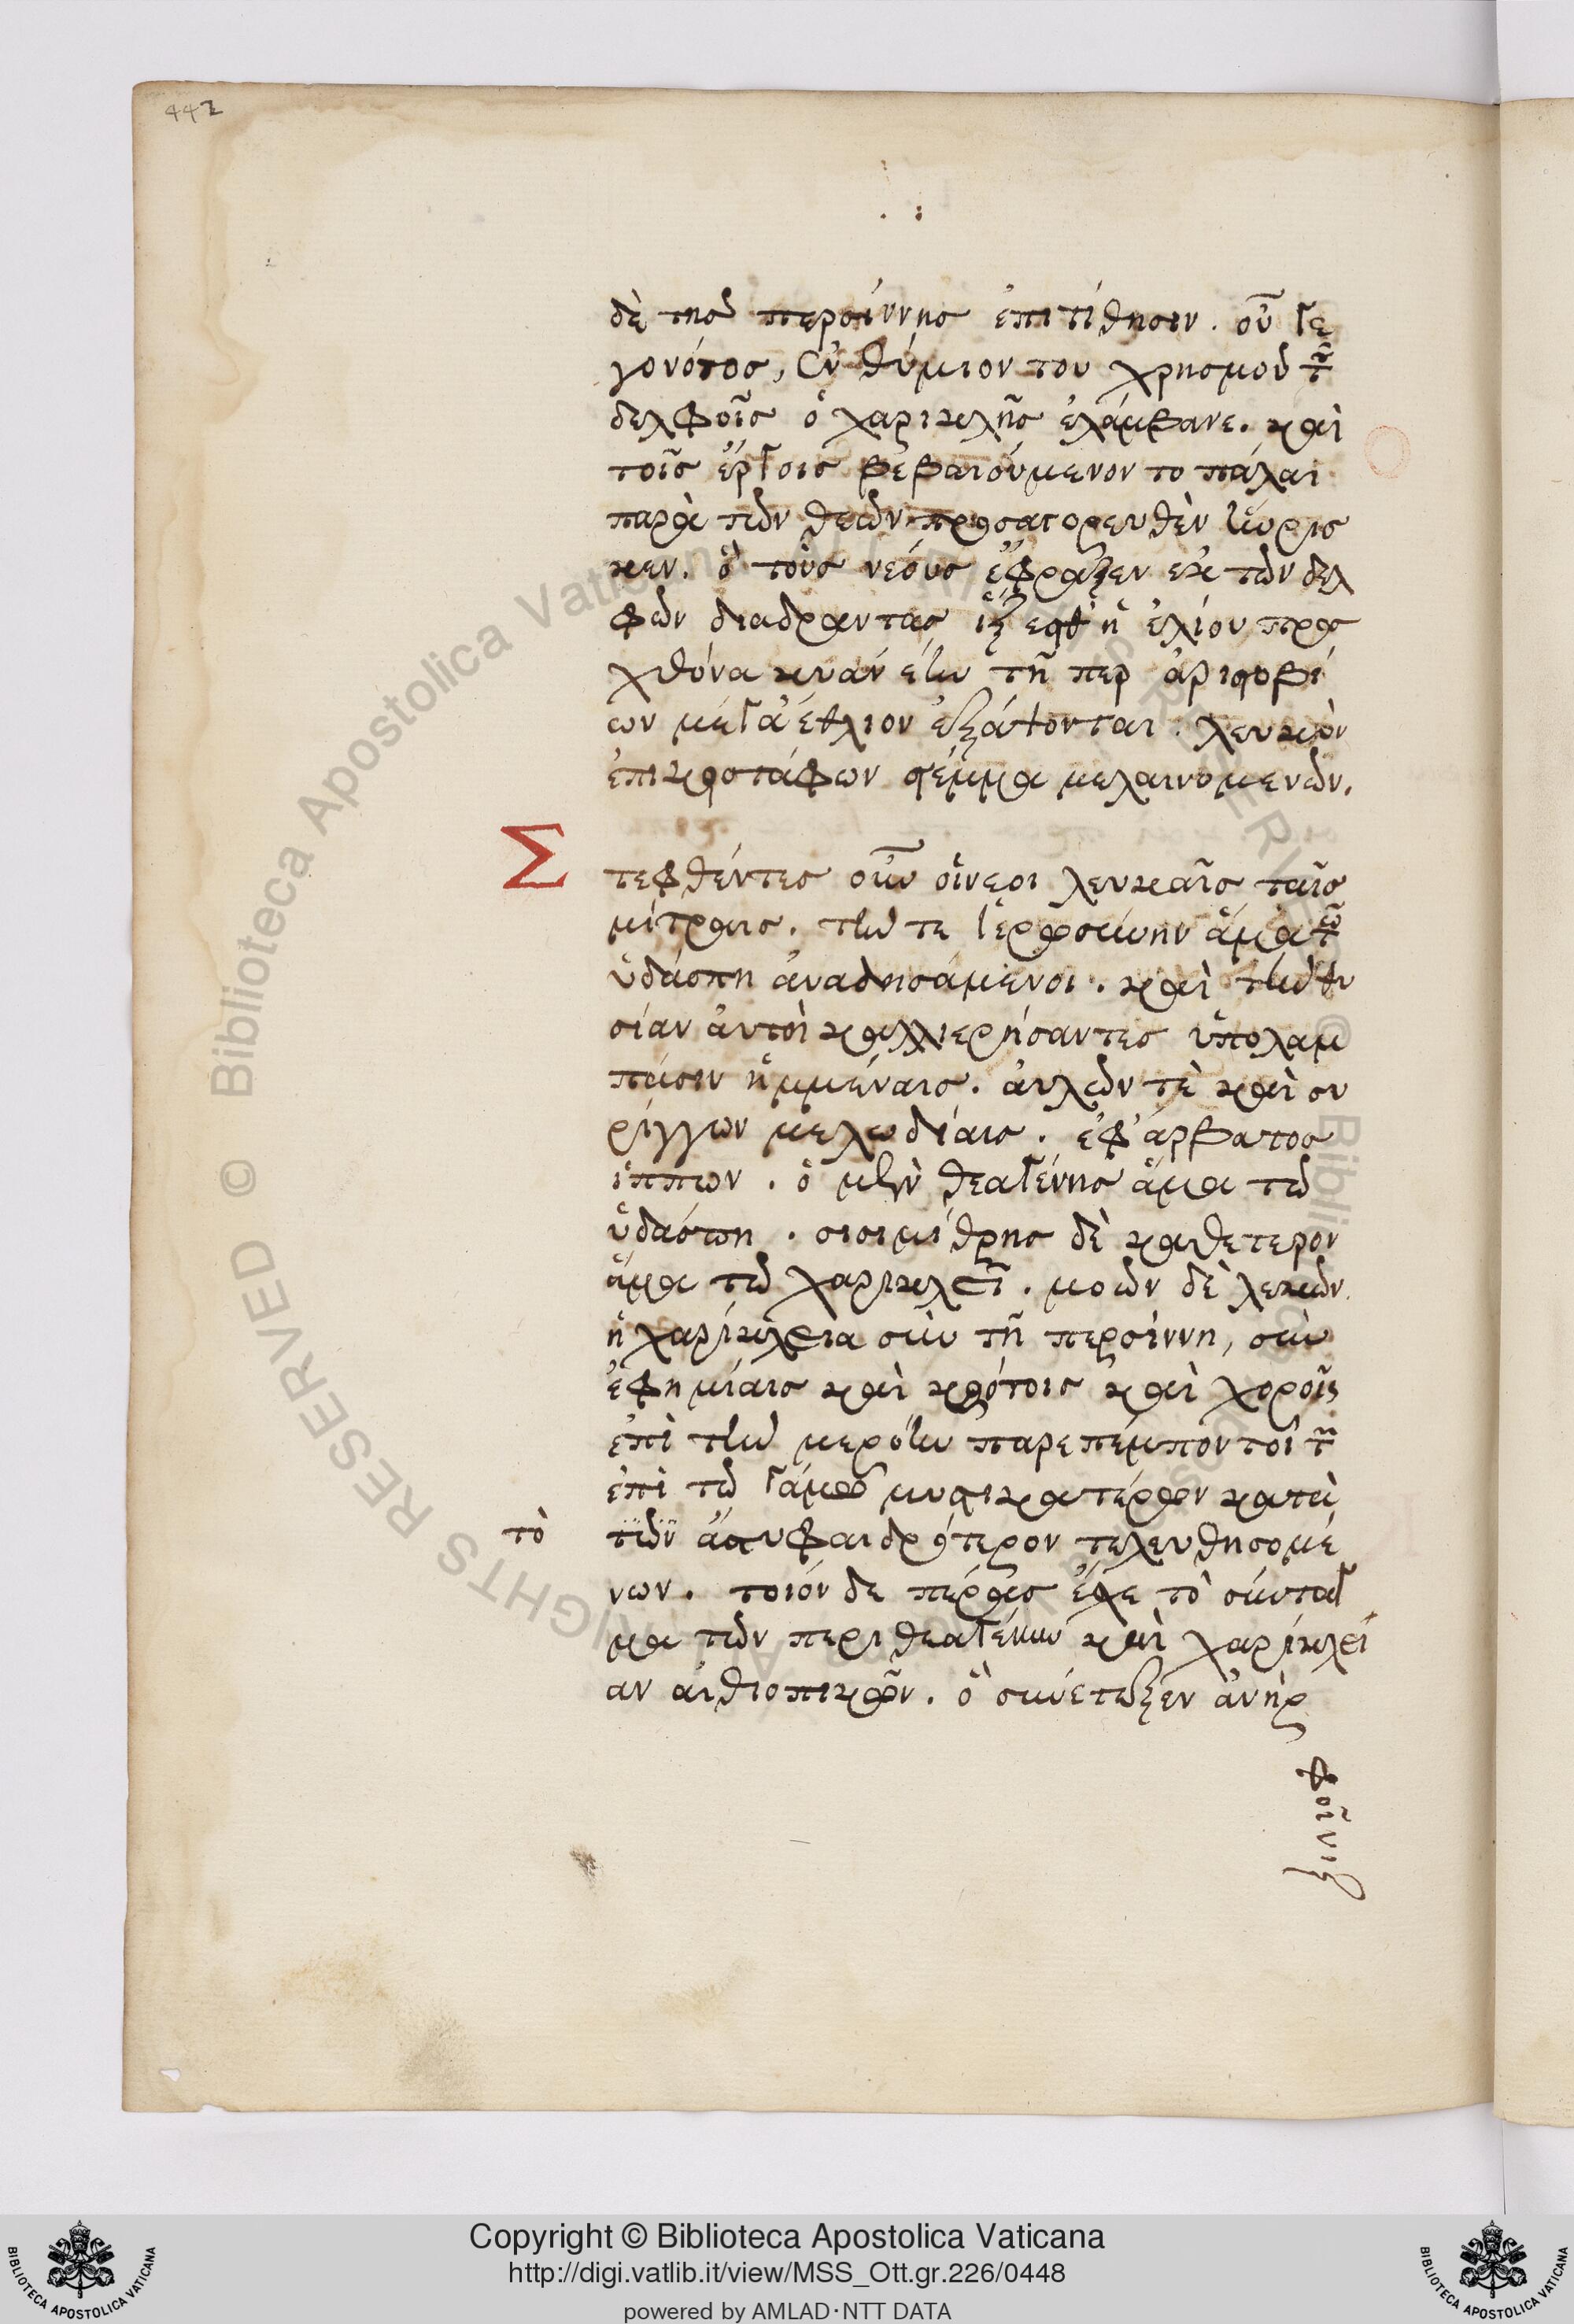 442
δὲ της περσίννης ἐπιτίθησιν. οὗ γε
γονότος, ἐνθύμιον του χρησμοῦ τοῦ ἐν
δελφοῖς ὁ χαρικλῆς ἐλάμβανε. καὶ
τοῖς ἔργοις βεβαιούμενον το πάλαι
παρὰ τῶν θεῶν προσαγορευθὲν ηὕρισ
κεν. ὃ τοὺς νέους ἔφραζεν ἐκ τῶν δελ
φῶν διαδράντας ἵξεσθ' ἠελίου προς
χθόνα κυανέην τῆπερ ἀριστοβί
ων μέγ' ἀέθλιον ἐξάψονται. λευκὸν
ἐπι κροτάφων στέμμα μελαινομενῶν.
Στεφθέντες οὖν οἵνεοι λευκαῖς ταῖς
μίτραις. τήν τε ἱερωσύνην ἅμα τῶ
ὑδάσπη ἀναδησάμενοι. καὶ τὴν θυ
σίαν ἀυτοὶ καλλιερήσαντες ὑπολαμ
πάσιν ἡμμέναις. ἀυλῶν τὲ καὶ συ
ρίγγων μελωδίαις. ἐφ' ἁρματος
ἵππων. ὁ μὲν θεαγένης ἅμα τῶ
ὑδάσπη. σισιμίθρης δὲ καθετερον
ἅμα τῶ χαρικλεῖ. βοῶν δὲ λευκῶν.
ἡ χαρίκλεια σὺν τῆ περσίννη, σὺν
ἐφημίαις καὶ κρότοις καὶ χοροῖς
ἐπὶ τὴν μερόην παρεπέμποντο τῶν
ἐπὶ τῶ γάμω μυστικωτέρων κατὰ
τὸ τῶν ἄστυ φαιδρότερον τελευθησομέ
νων. τοιόνδε πέρας ἔσχε τὸ σύνταγ
μα τῶν περι θεαγένην καὶ χαρίκλει
αν ἀιθιοπικῶν. ὃ συνέταξεν ἀνὴρ
φοῖνιξ
Copyright © Biblioteca Apostolica Vaticana
http://digi.vatlib.it/view/MSS_Ott.gr.226/0448
powered by AMLAD·NTT DATA